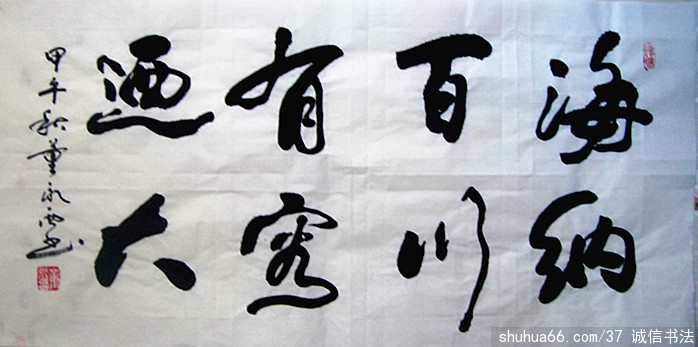 海纳
百川
有容
迺大
甲午秋董永西书
shuhua66.com/37 诚信书法